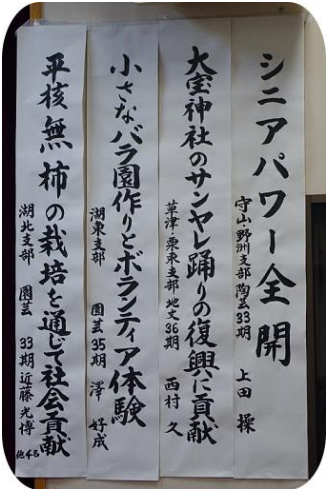 シニアパワー全開
守山野洲支部 陶芸33期 上田 操
大宝神社のサンヤレ踊りの復興に貢献
草津・栗東支部 地文36期 西村 久
小さなバラ園作りとボランティア体験
湖東支部 園芸35期 澤 好成
平核無柿の栽培を通じて社会貢献
湖北支部 園芸 33期 近藤光博
他4名